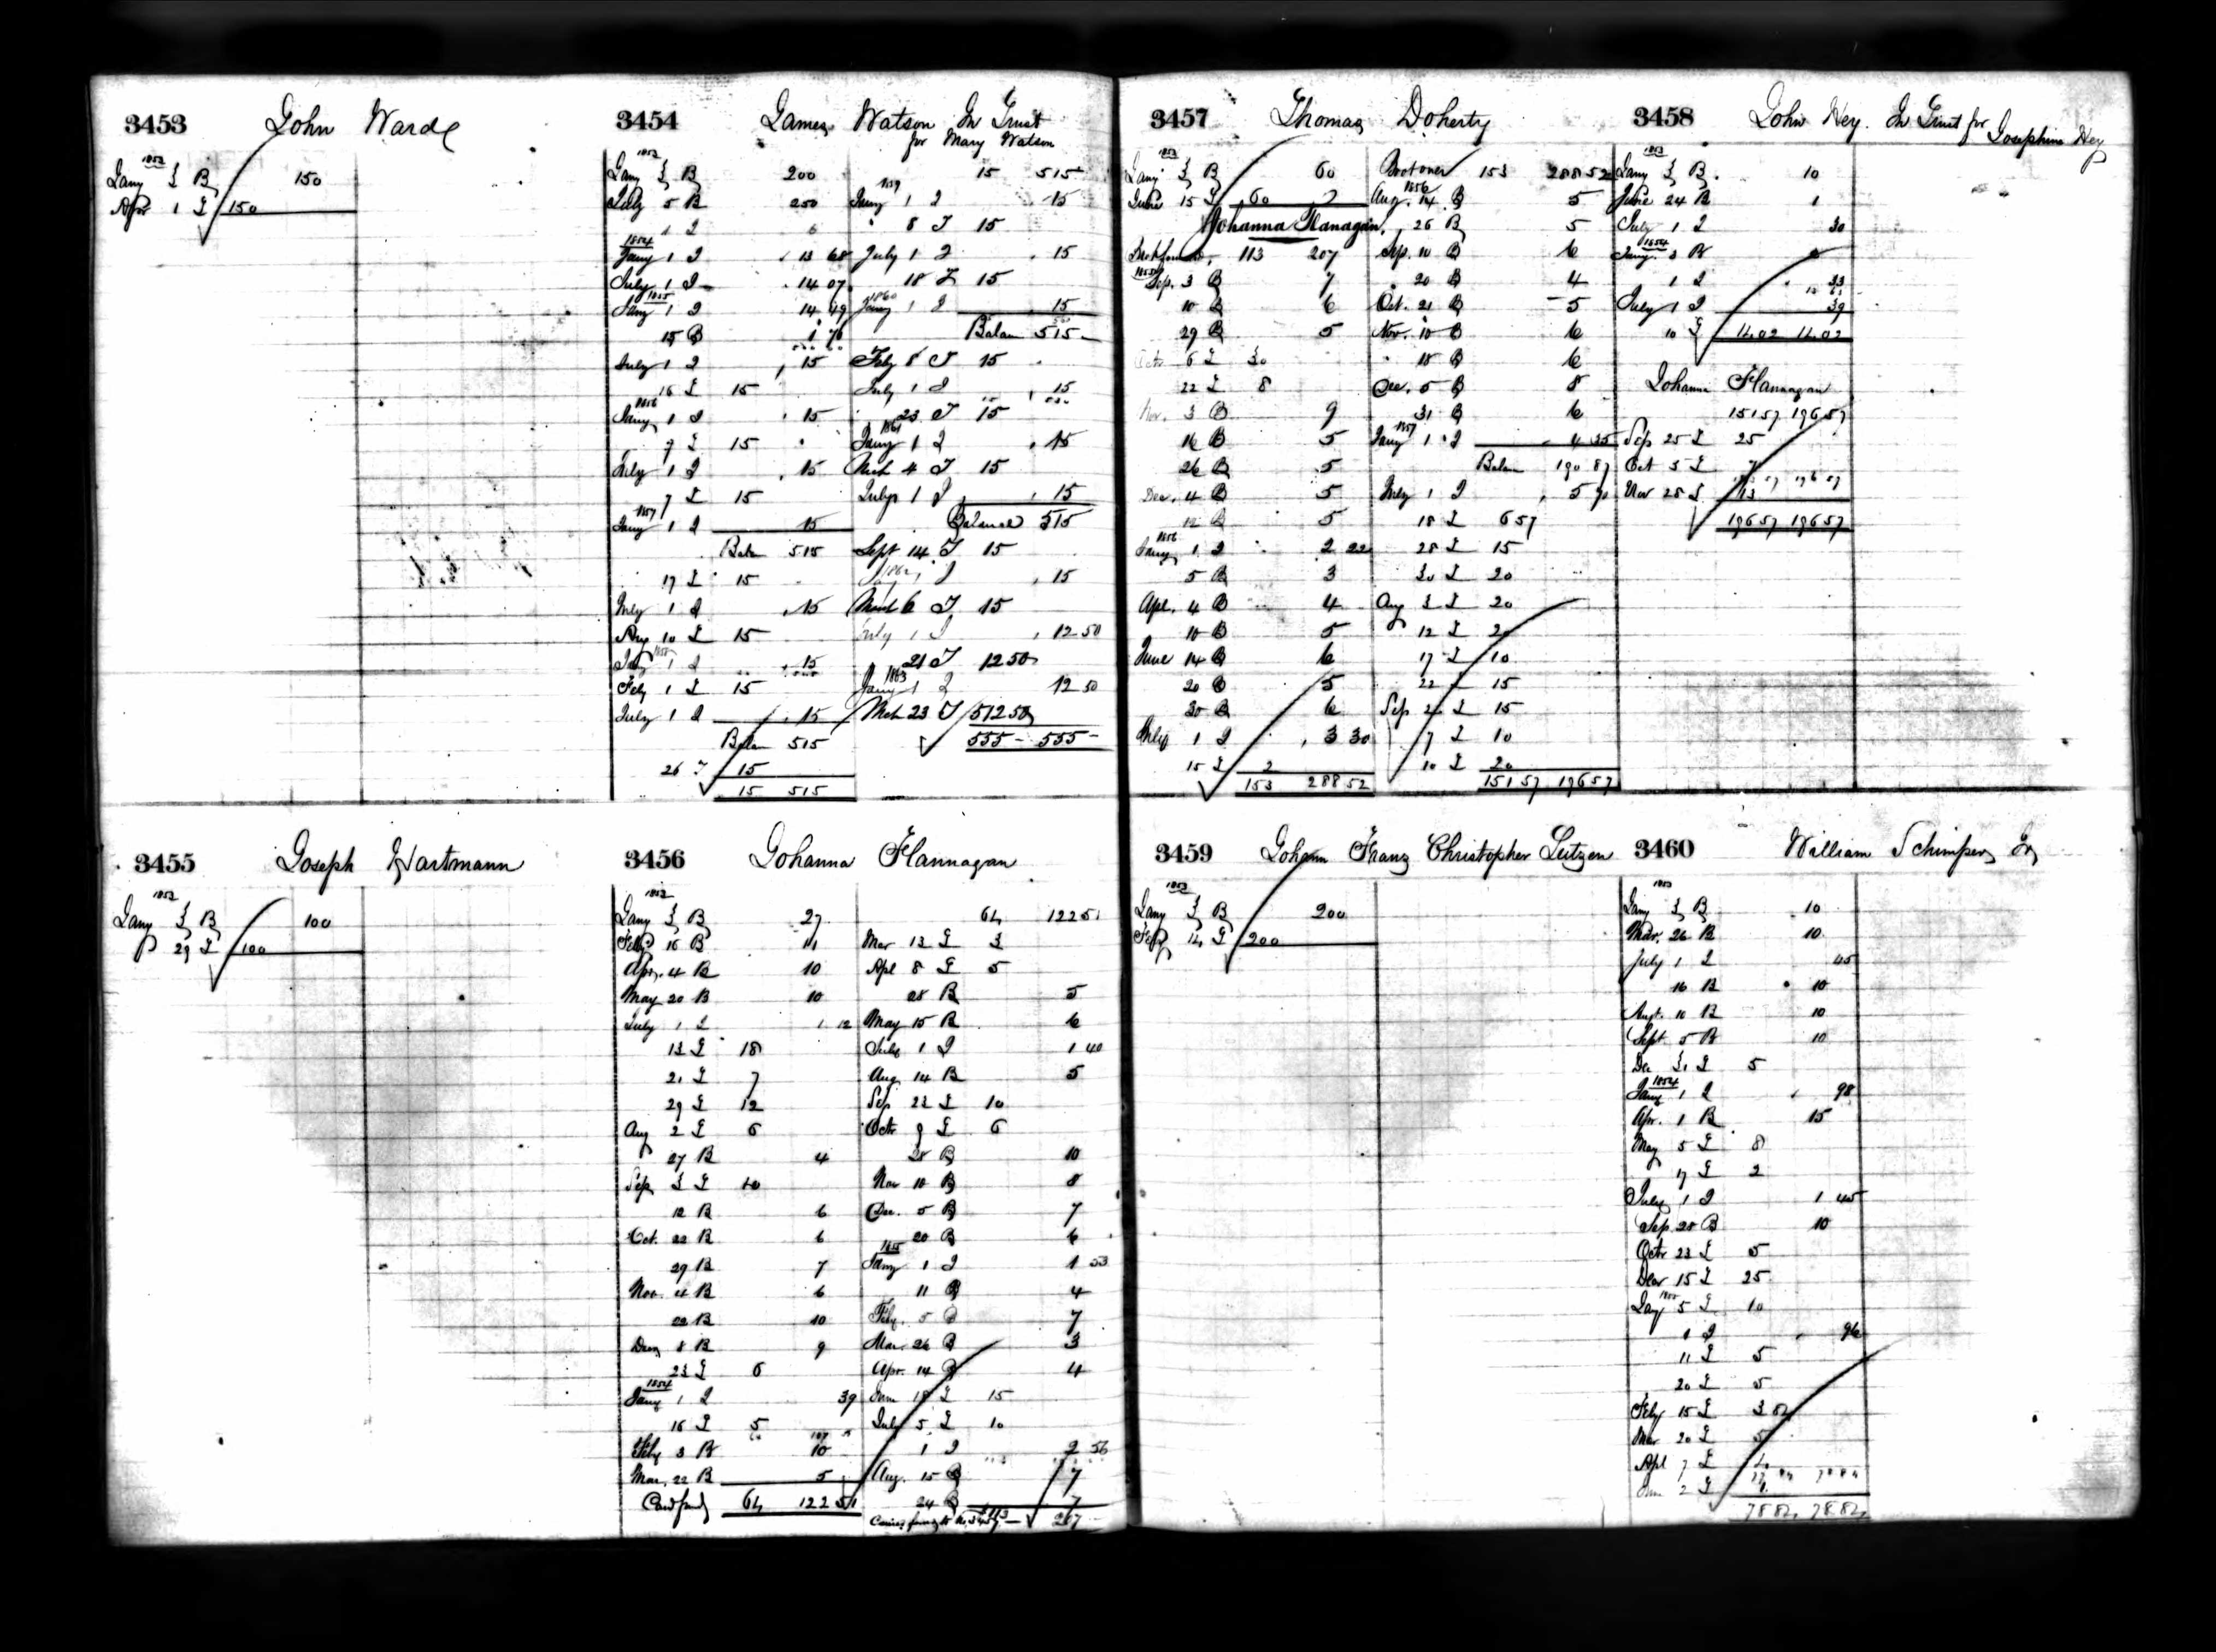 3453 John Warde
1853
Jany 3 B 150
Apr 1 D 150
3454 James Watson In Trust
for Mary Watson
1853
Jany 3 B 200
July 5 B 250
1 D 6
1854
Jany 1 D 13 68
July 1 D 14 07
1855
Jany 1 D 14 49
15 B
July 1 D 15
16 D 15
1856
Jany 1 D 15
7 D 15
July 1 D 15
7 D 15
1857
Jany 1 D 15
Balan 515
17 D 15
July 1 D 15
Aug 10 D 15
1858
Jany 1 D 15
Feby 1 D 15
July 1 D 15
Balan 515
26 D 15
15 515
15 515
1859
Jany 1 D 15
8 D 15
July 1 D 15
18 D 15
1860
Jany 1 D 15
Balan 515
Feby 8 D 15
July 1 D 15
23 D 15
1861
Jany 1 D 15
Mch 4 D 15
July 1 D 15
Balance 515
Sept 14 D 15
1862
1 D 15
March 6 D 15
July 1 D 12 50
21 D 12 50
1863
Jany 1 D 12 50
Mch 23 D 512 50
555 - 555 -
3455 Joseph Hartmann
1853
Jany 3 B 100
29 D 100
3456 Johanna Flannagan
1853
Jany 3 B 27
Feby 16 B 11
Apr. 4 B 10
May 20 B 10
July 1 D 1 12
13 D 18
21 D 7
29 D 12
Aug 2 D 6
27 B 4
Sep 3 D 10
12 B 6
Oct. 22 B 6
29 B 7
Nov. 4 B 6
22 B 10
Decr 8 B 9
23 D 6
1854
Jany 1 D 39
16 D 5
Feby 3 B 10
Mar. 22 B 5
Card forwd 64 122 51
64 122 51
Mar 13 D 3
Apl 8 D 5
28 B 5
May 15 B 6
July 1 D 1 40
Aug 14 B 5
Sep 23 D 10
Octr 9 D 6
28 B 10
Nov 10 B 8
Dec. 5 B 7
20 B 6
1855
Jany 1 D 1 53
11 B 4
Feby. 5 B 7
Mar. 26 B 3
Apr. 14 B 4
June 18 D 15
July 5 D 10
1 D 2 56
Aug. 15 B 7
24 B 7
113 207
3457 Thomas Doherty
1853
Jany 3 B 60
June 15 D 60
Johanna Flanagan
113 207
1855
Sep. 3 B 7
10 B 6
29 B 5
Octr 6 D 30
22 D 8
Nov. 3 B 9
16 B 5
26 B 5
Dec. 4 B 5
12 B 5
1856
Jany 1 D 2 22
5 B 3
Apl. 4 B 4
10 B 5
June 14 B 6
20 B 5
30 B 6
July 1 D 3 30
15 D 2
153 288 52
Brot over 153 288 52
1856
Aug. 14 B 5
26 B 5
Sep. 10 B 6
20 B 4
Oct. 21 B 5
Nov. 10 B 6
18 B 6
Dec. 5 B 8
31 B 6
1857
Jany 1 D 4 35
Balan 190 87
July 1 D 5 70
18 D 6 57
28 D 15
30 D 20
Aug 3 D 20
12 D 20
17 D 10
22 D 15
Sep 2 D 15
7 D 10
10 D 20
151 57 196 57
3458 John Hey. In Trust for Josephine Hey
1853
Jany 3 B. 10
June 24 B 1
July 1 D 30
1854
Jany. 3 B
1 D 33
July 1 D 39
10 D 14.02 14.02
Johanna Flannagan
151 57 196 57
Sep 25 D 25
Oct 5 D 7
Nov 28 D 13
196 57 196 57
3459 Johann Franz Christopher Lutzen
1853
Jany 3 B 200
Feby 14 D 200
3460 William Schimper Jr
1853
Jany 3 B 10
Mar. 26 B 10
July 1 D 45
16 B 10
Augt. 10 B 10
Sept. 5 B 10
De 31 D 5
1854
Jany 1 D 98
Apr. 1 B 15
May 5 D 8
17 D 2
July 1 D 1 45
Sep. 28 B 10
Octr 23 D 5
Decr 15 D 25
1855
Jany 5 D 10
1 D 96
11 D 5
20 D 5
Feby 15 D 3 84
Mar 20 D 5
Apl 7 D
2 D
78 84 78 84